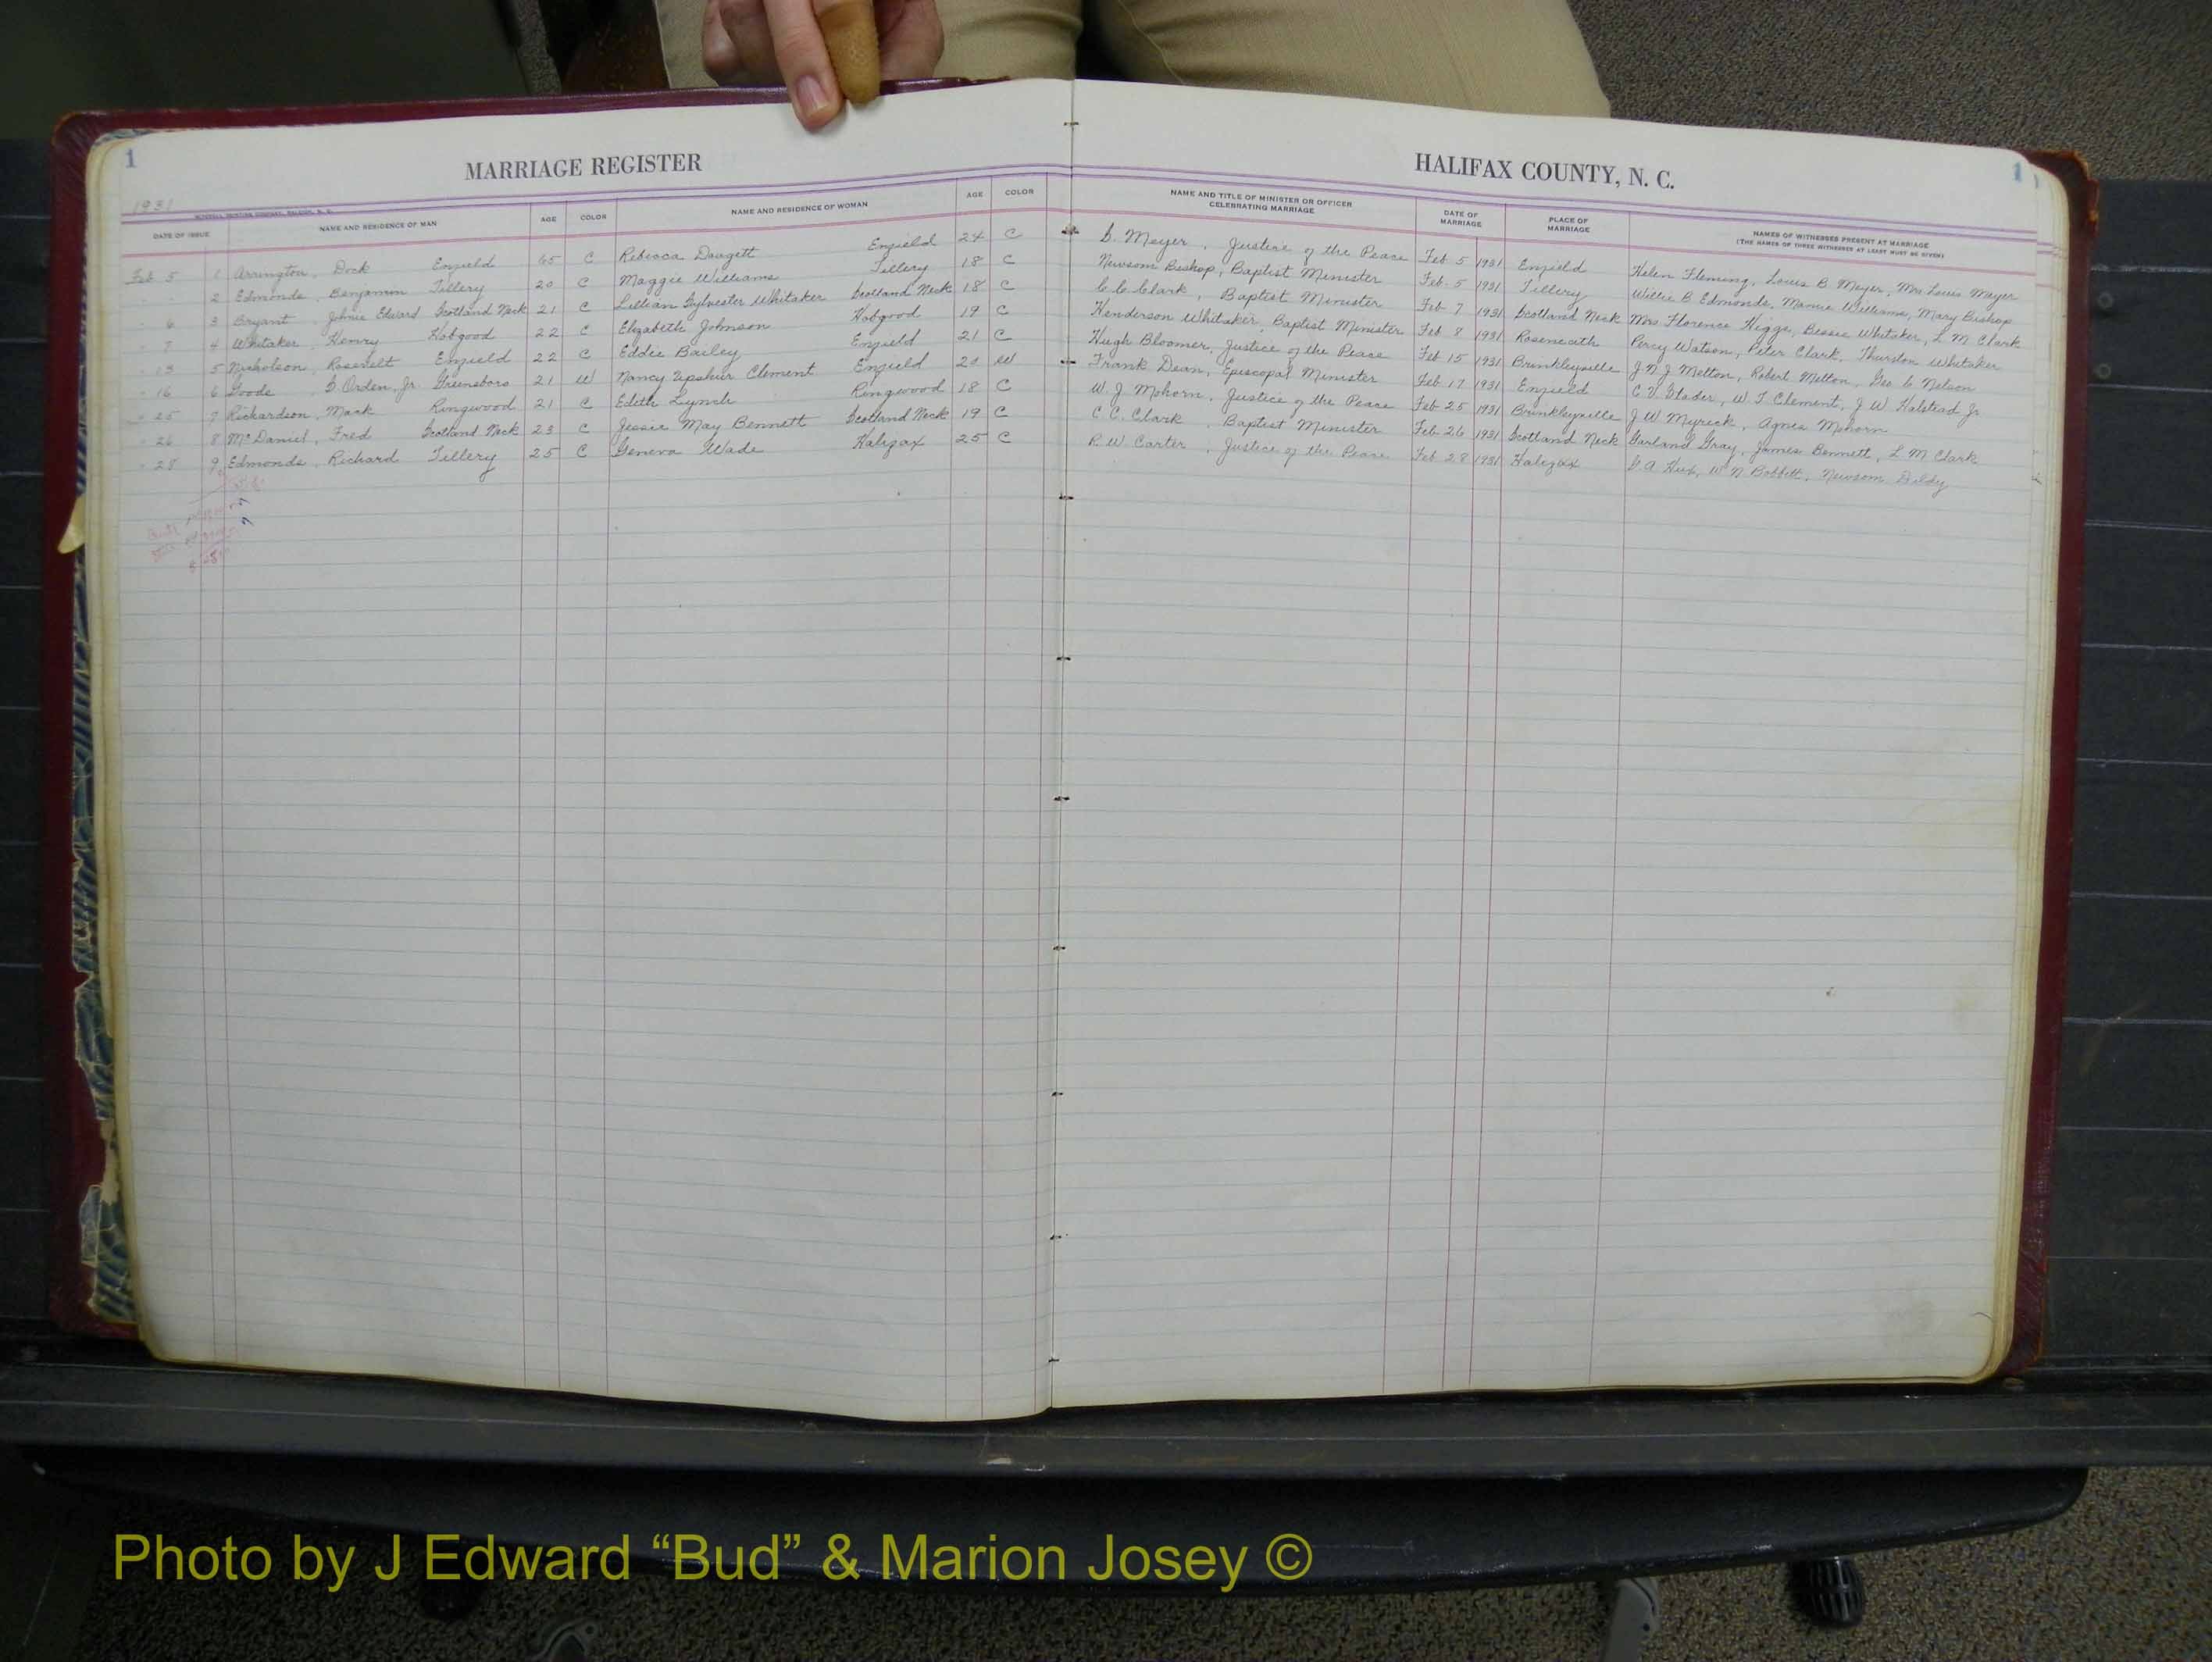 1
MARRIAGE REGISTER
HALIFAX COUNTY, N. C.
1
1931
DATE OF ISSUE NAME AND RESIDENCE OF MAN AGE COLOR NAME AND RESIDENCE OF WOMAN AGE COLOR NAME AND TITLE OF MINISTER OR OFFICER CELEBRATING MARRIAGE DATE OF MARRIAGE PLACE OF MARRIAGE NAMES OF WITNESSES PRESENT AT MARRIAGE (THE NAMES OF THREE WITNESSES AT LEAST MUST BE GIVEN)
Feb 5 1 Arrington, Dock Enfield 65 C Rebecca Enfield 24 C S. Meyer, Justice of the Peace Feb 5 1931 Enfield Helen Fleming, Louis B. Meyer, Mrs Louis Meyer
" " 2 Edmonds, Benjamin Tillery 20 C Maggie Williams Tillery 18 C Newsom Bishop, Baptist Minister Feb. 5 1931 Tillery Willie B Edmonds, Mamie Williams, Mary Bishop
" 6 3 Bryant, Johnie Edward Scotland Neck 21 C Lillian Sylvester Whitaker Scotland Neck 18 C C. C. Clark, Baptist Minister Feb 7 1931 Scotland Neck Mrs Florence Higgs, Bessie Whitaker, L M Clark
" 7 4 Whitaker, Henry Hobgood 22 C Elizabeth Johnson Hobgood 19 C Henderson Whitaker, Baptist Minister Feb 8 1931 Roseneath Percy Watson, Peter Clark, Thurston Whitaker
" 13 5 Nicholson, Rosevelt Enfield 22 C Eddie Bailey Enfield 21 C Hugh Bloomer, Justice of the Peace Feb 15 1931 Brinkleyville J N J Melton, Robert Melton, Geo C Nelson
" 16 6 Goode, S. Orden, Jr Greensboro 21 W Nancy Upshur Clement Enfield 20 W Frank Dean, Episcopal Minister Feb 17 1931 Enfield W T Clement, J W Halstead Jr
" 25 7 Richardson, Mack Ringwood 21 C Edith Lynch Ringwood 18 C W. J Mohorn, Justice of the Peace Feb 25 1931 Brinkleyville J W Myrick, Agnes Mohorn
" 26 8 McDaniel, Fred Scotland Neck 23 C Jessie May Bennett Scotland Neck 19 C C. C. Clark, Baptist Minister Feb 26 1931 Scotland Neck Garland Gray, James Bennett, L M Clark
" 28 9 Edmonds, Richard Tillery 25 C Geneva Wade Halifax 25 C R. W. Carter, Justice of the Peace Feb 28 1931 Halifax Hux, W N Bobbitt, Newsom
Photo by J Edward “Bud” & Marion Josey ©